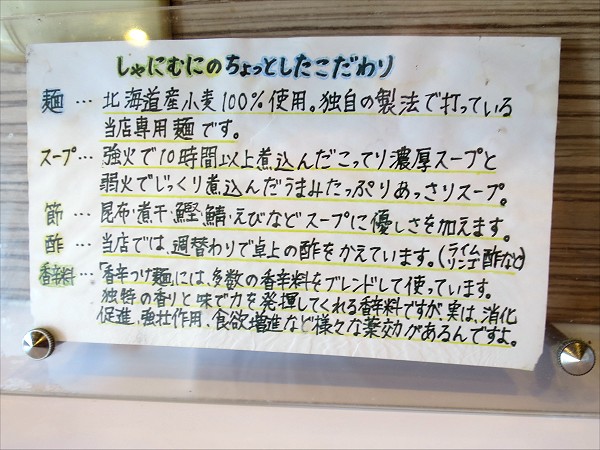 しゃにむにのちょっとしたこだわり
麺 … 北海道産小麦100%使用。独自の製法で打っている
当店専用麺です。
スープ… 強火で10時間以上煮込んだこってり濃厚スープと
弱火でじっくり煮込んだうまみたっぷりあっさりスープ。
節 … 昆布・煮干・鰹・鯖・えびなどスープに優しさを加えます。
酢 … 当店では、週替わりで卓上の酢をかえています。(ライム リンゴ 酢など)
香辛料…「香辛つけ麺」には、多数の香辛料をブレンドして使っています。
独特の香りと味で力を発揮してくれる香辛料ですが、実は、消化
促進、強壮作用、食欲増進など様々な薬効があるんですよ。